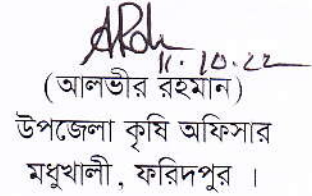 11.10.22
(আলভীর রহমান)
উপজেলা কৃষি অফিসার
মধুখালী, ফরিদপুর ।